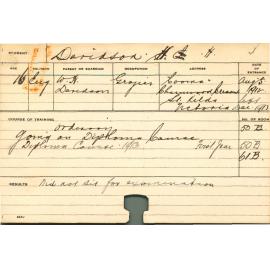 STUDENT Davidson H. J
AGE RELIGION PARENT OR GUARDIAN OCCUPATION ADDRESS DATE
16 C/Eng W. H. Grazier "Loorna" Aug 5
Davidson Chenwood Crescent 1912
St Kilda Sept
Victoria Dec. 1912
COURSE OF TRAINING NO. OF ROOM
Ordinary 50 B.
Going on Diploma Course
Diploma Course 1913. First Year 50 B.
61 B.
RESULTS Did not sit for examination